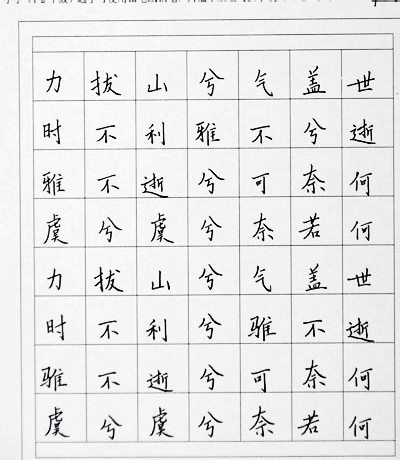 力拔山兮气盖世
时不利雅不兮逝
雅不逝兮可奈何
虞兮虞兮奈若何
力拔山兮气盖世
时不利兮骓不逝
骓不逝兮可奈何
虞兮虞兮奈若何